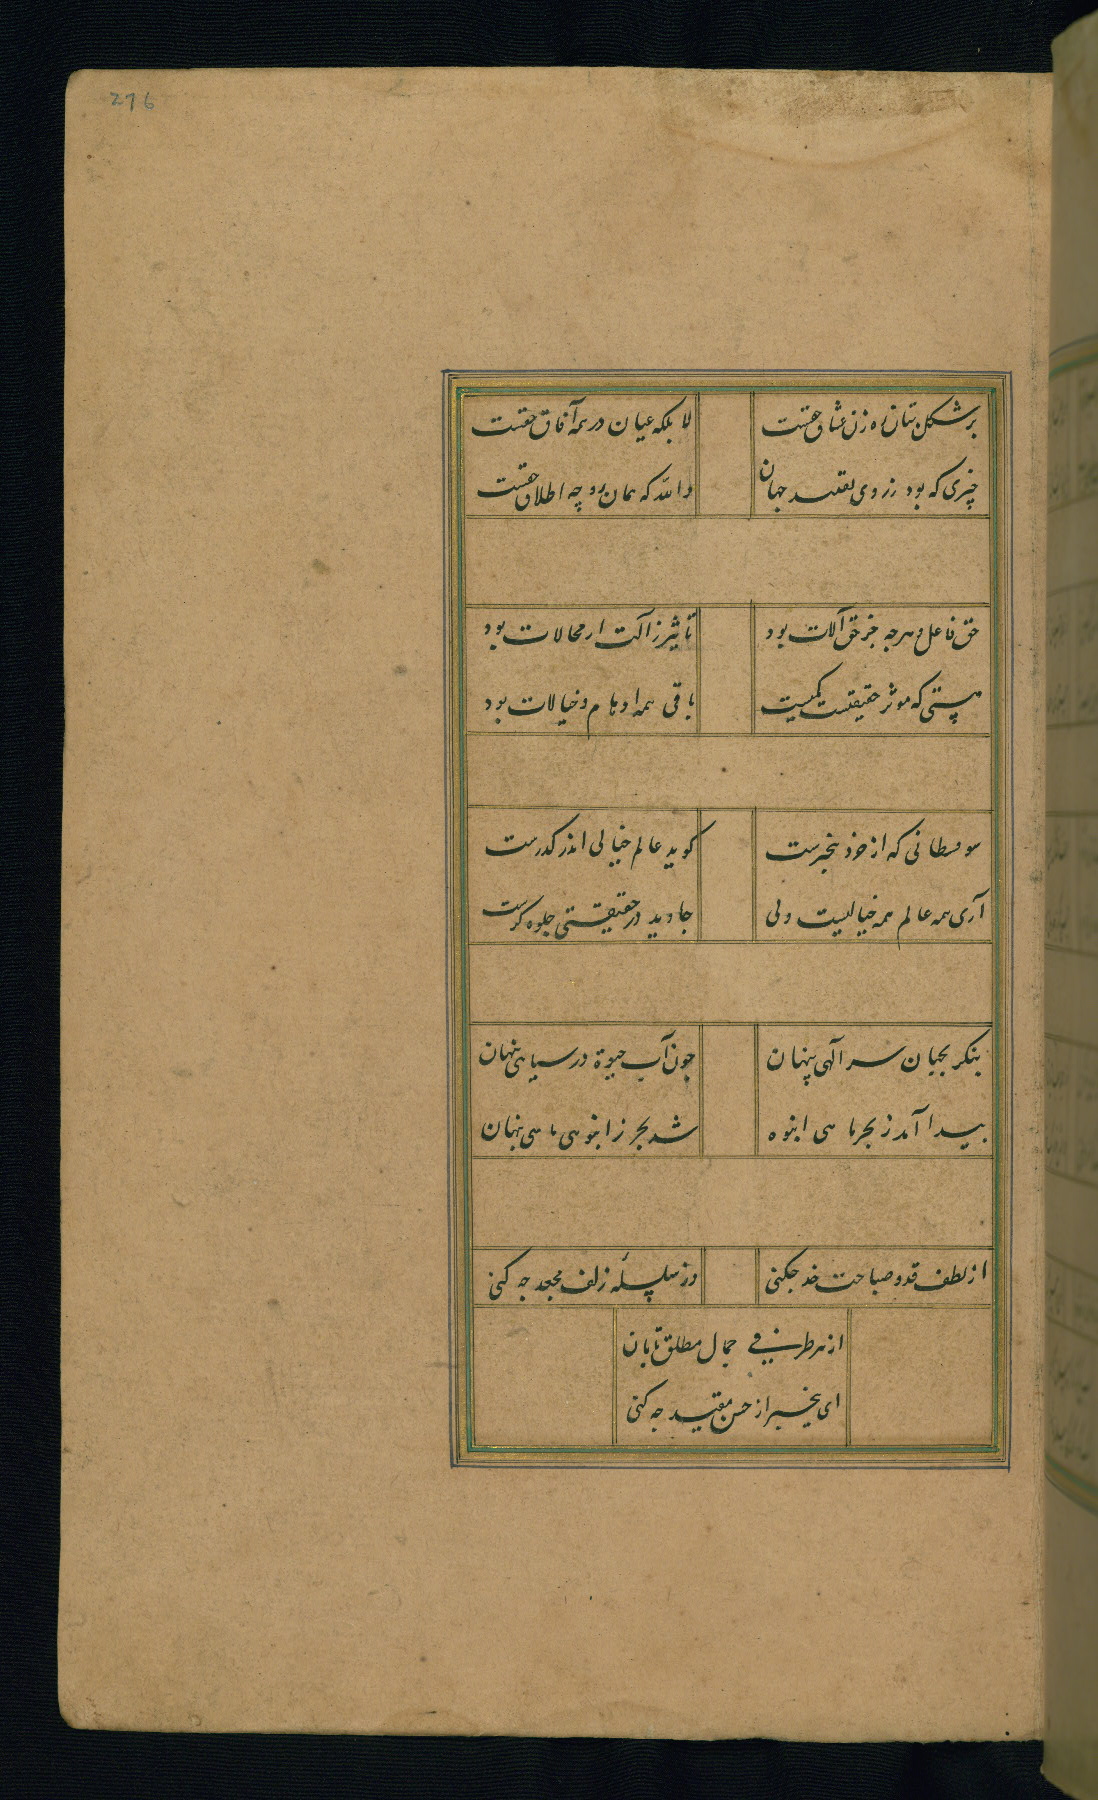 276
بر شکل بتان ره زن عشاق حقست لا بلکه عیان در همه آفاق حقست
چیزی که بود ز روی تقیید جهان والله که همان بوجه اطلاق حقست
حق فاعل و هرچه جز حق آلات بود تأثیر ز آلت از محالات بود
هستی که موثر حقیقیست یکیست باقی همه اوهام و خیالات بود
سوفسطائی که از خرد بیخبرست کوید عالم خیالی اندر گذرست
آری همه عالم همه خیالیست ولی جاوید در حقیقتی جلوه کرست
بنکر بجهان سر الهی پنهان چون آب حیوة در سیاهی پنهان
پیدا آمد ز بحر ماهی انبوه شد بحر ز انبوهی ماهی پنهان
از لطف قد و صباحت خد چکنی وز سلسلهٔ زلف مجعد چه کنی
از هر طرفی جمال مطلق تابان
ای بیخبر از حسن مقید چه کنی